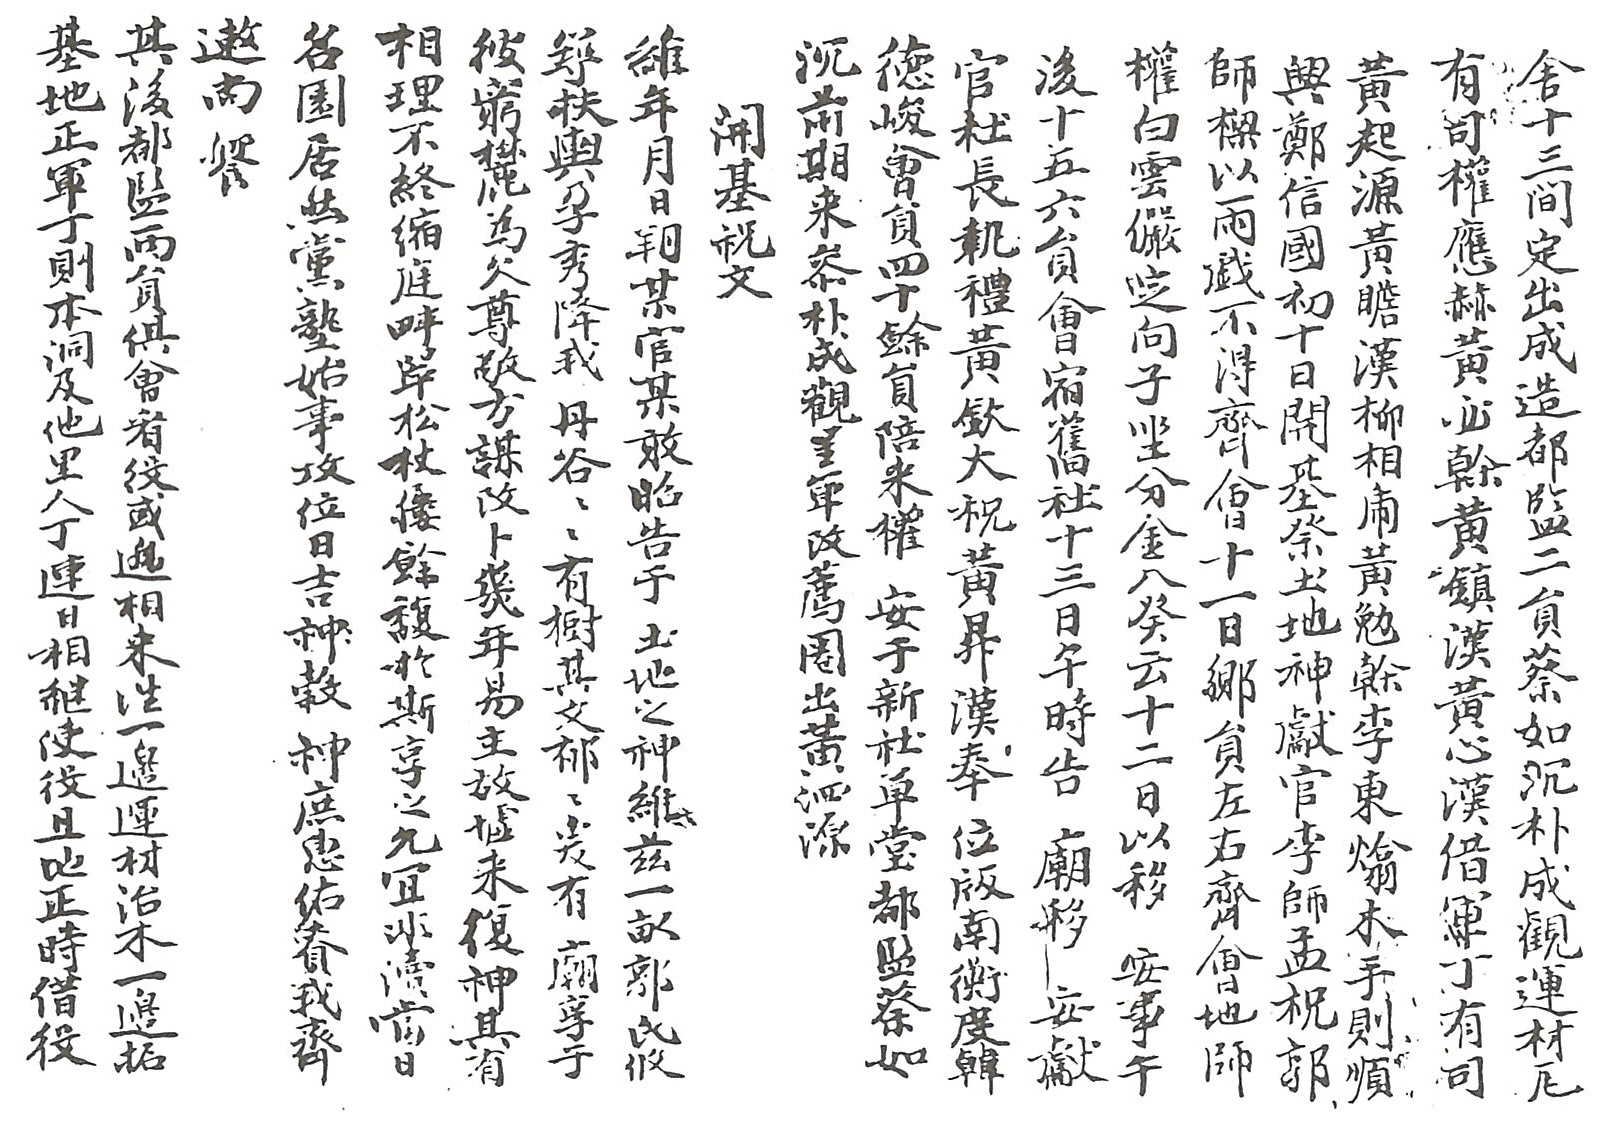 舍十三間定出成造都監二員蔡如沉朴成觀運材尼
有司權應赫黃必幹黃鎮漢黃心漢借軍丁有司
黃起源黃瞻漢柳相庸黃勉幹李東爚木手則順
興鄭信國初十日開基祭土地神獻官李師孟祝郭
師樑以雨戱不淂齊會十一日鄉員左右齊會地師
權白雲儼定向子坐分金八癸云十二日以移 安事午
後十五六員會宿舊社十三日午時告 廟移 安獻
官社長執禮黃欽大祝黃昇漢奉 位版南衡度韓
德峻會員四十餘員陪来權 安于新社草堂都監蔡如
沉前期来叅朴成觀呈單改薦圈出黃泗源
開基祝文
維年月日朔某官某敢昭告于 土地之神維茲一畝郭氏攸
築扶輿孕秀降我 丹谷〻〻有樹其文郁〻爰有 廟享于
彼窮麓為父尊敬方謀改卜幾年易主故墟来復神其有
相理不終縮厓畔舉松杖屨餘馥於斯享之允冝非瀆嘗日
名園居然黨塾始事攻位日吉神穀 神庶惠佑眷我齊
遨尚 饗
其後都監兩員俱會看役或遞相来往一邊運材治木一邊拓
基地正軍丁則本洞及他里人丁連日相継使役且地正時借役